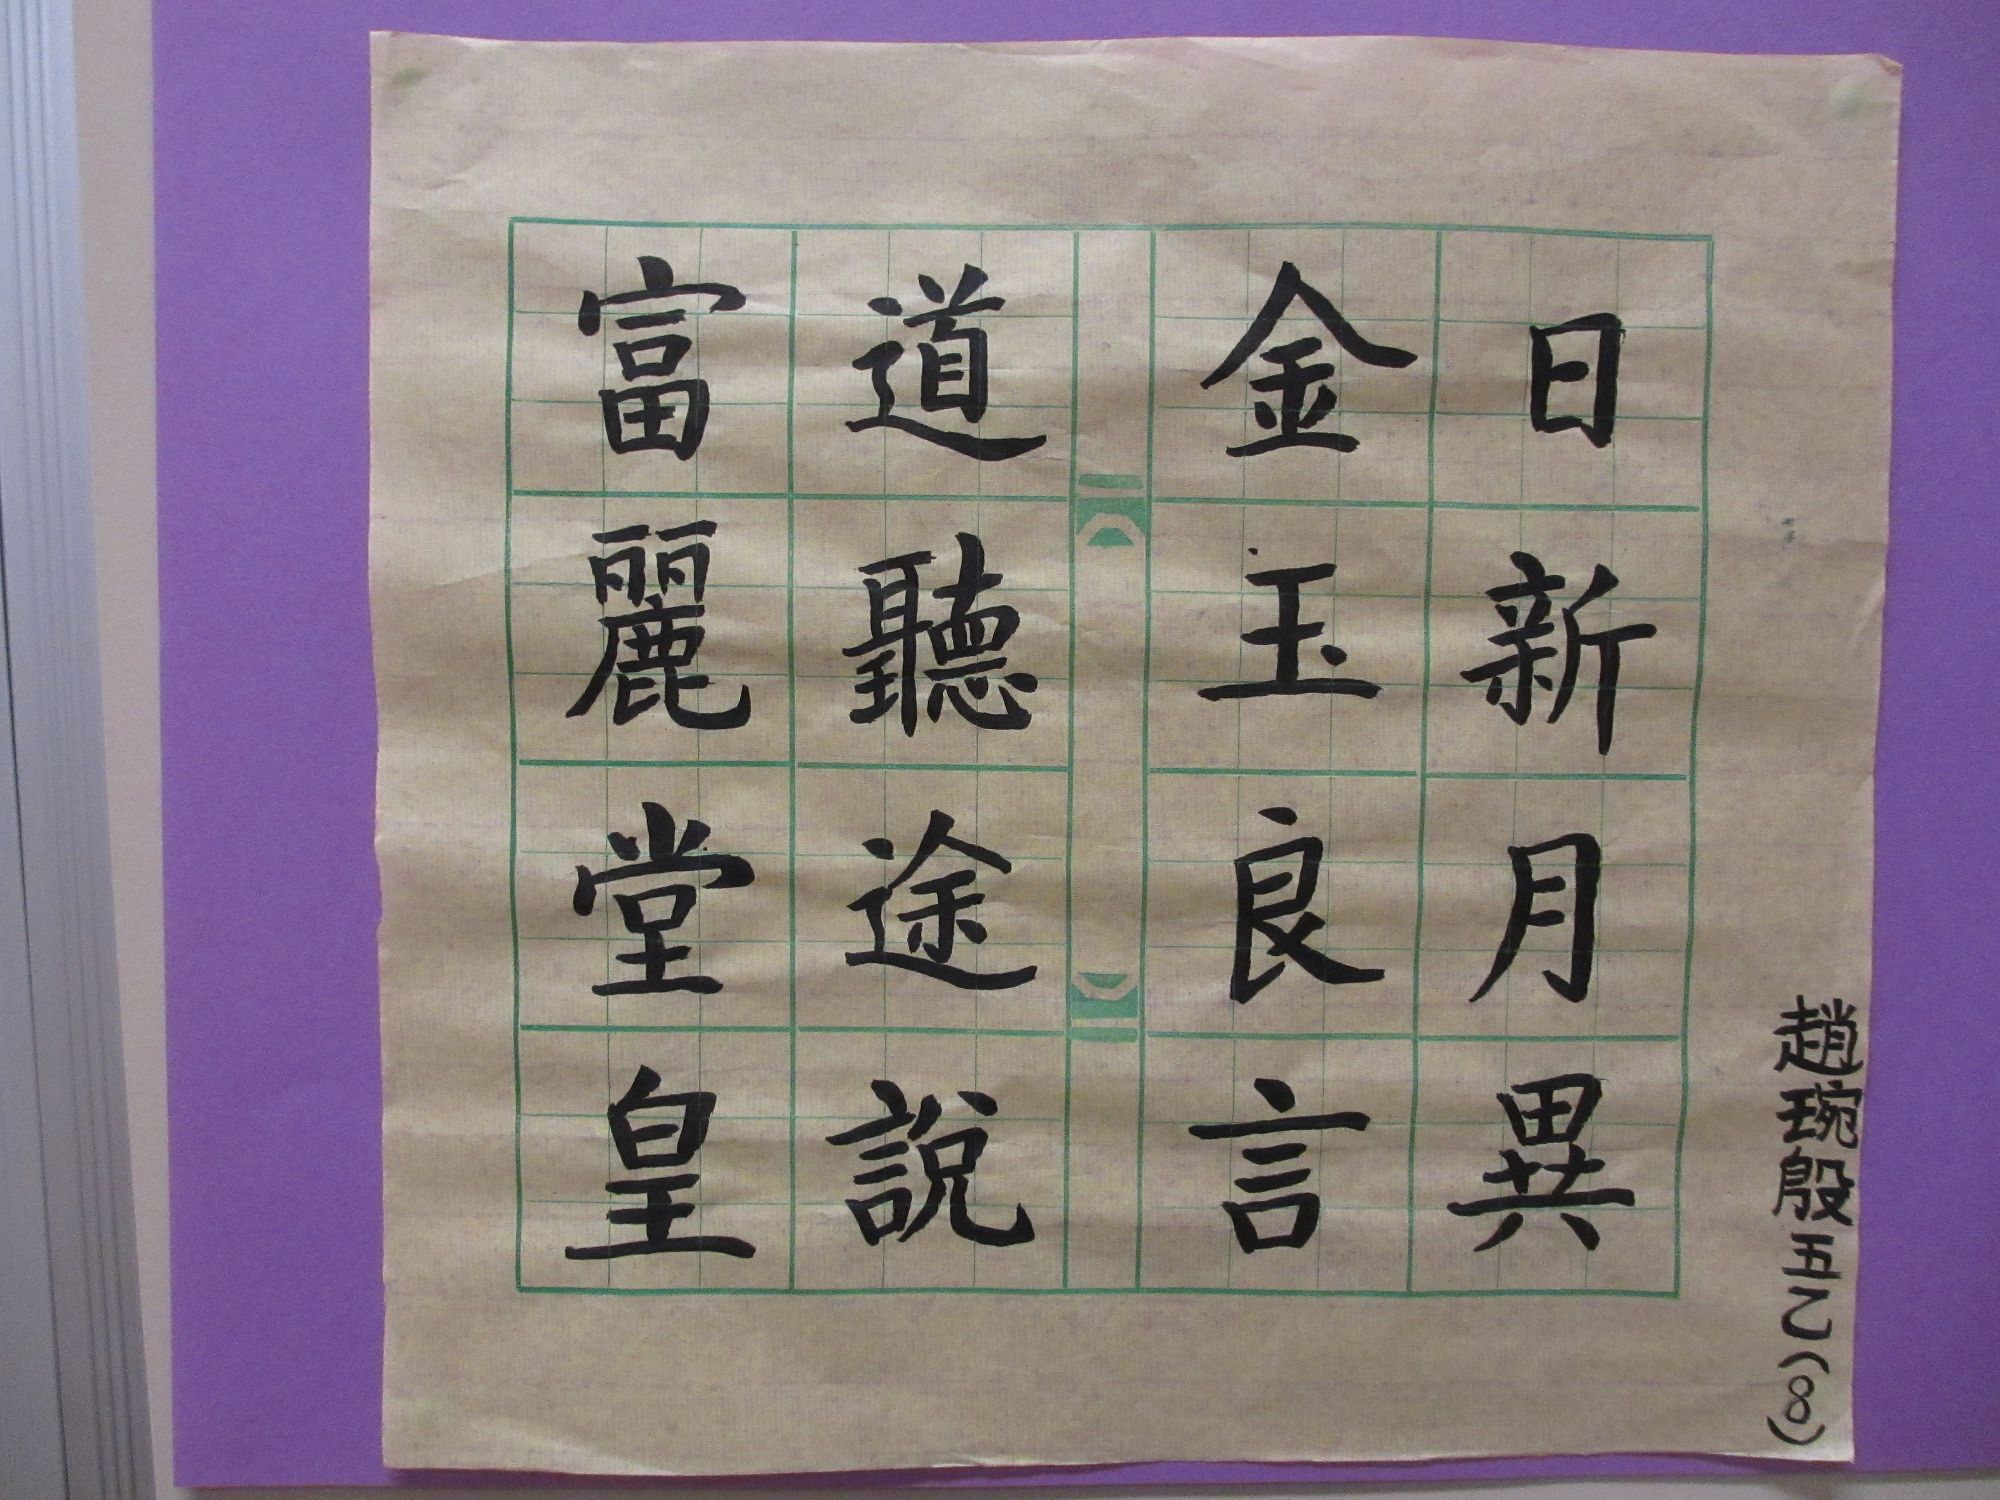 日新月異
金玉良言
道聽途說
富麗堂皇
趙琬殷五乙(8)